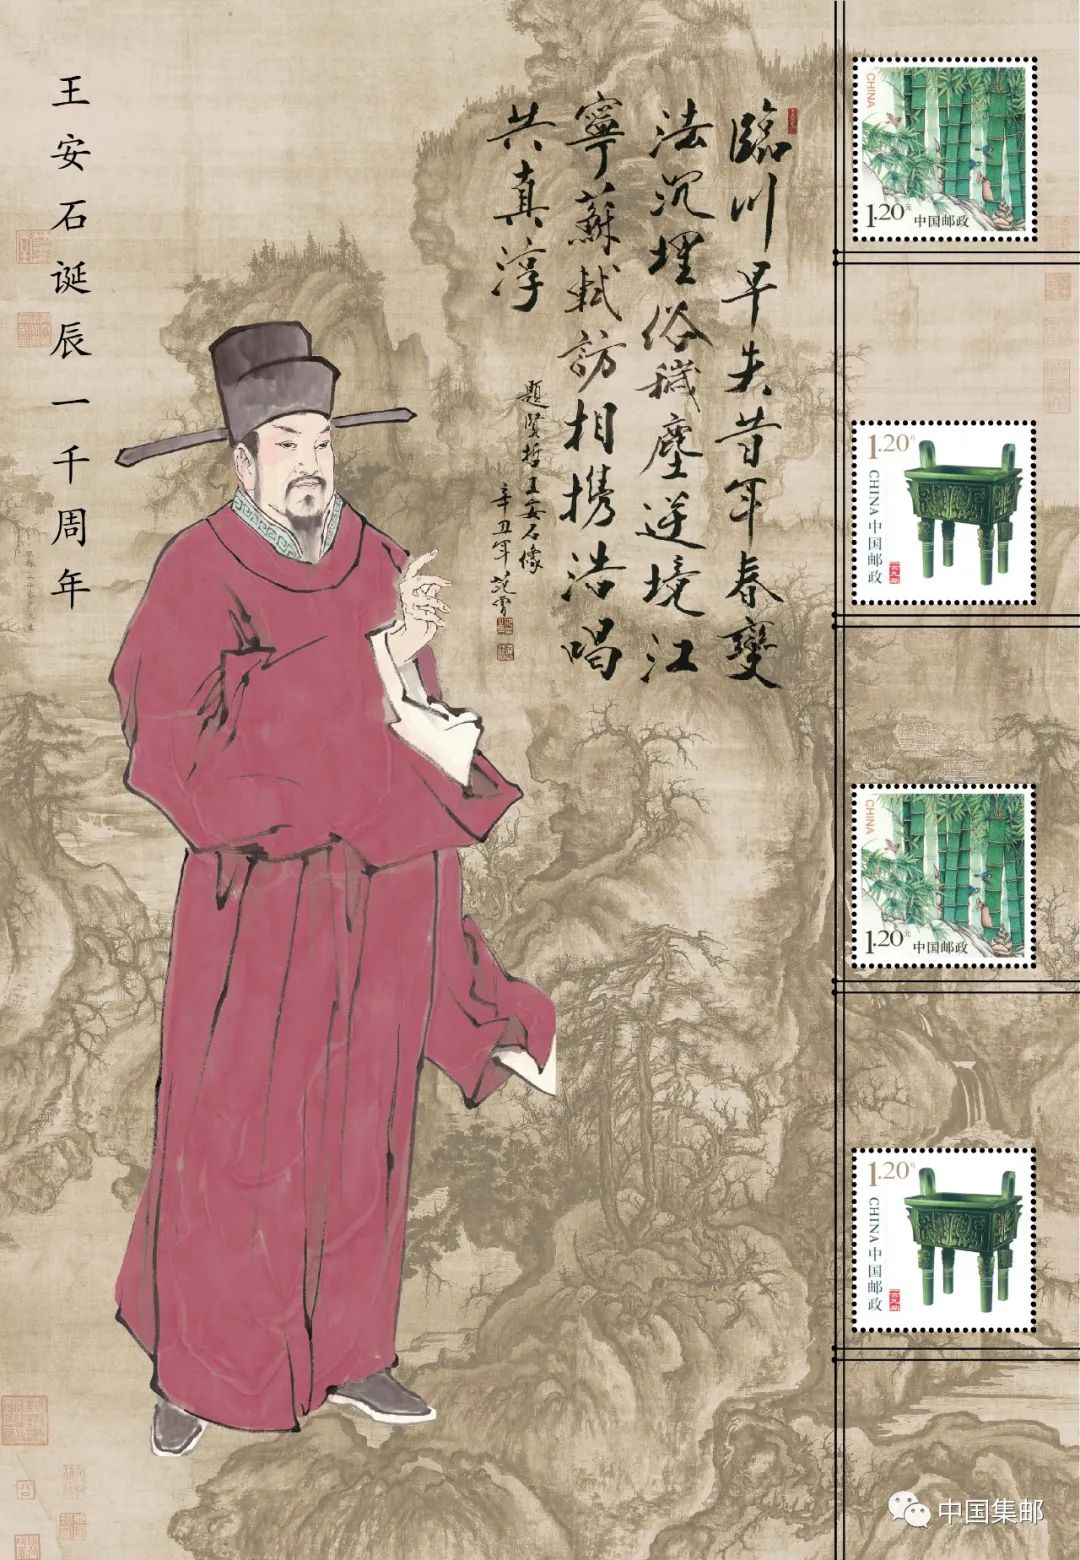 王安石诞辰一千周年
臨川早失昔年春變
法沉埋俗穢塵逆境江
寧蘇軾訪相携浩唱
共真淳
題賢哲王安石像
辛丑年范曾
CHINA
1.20元
中国邮政
1.20元
CHINA中国邮政
CHINA
1.20元
中国邮政
1.20元
CHINA中国邮政
中国集邮